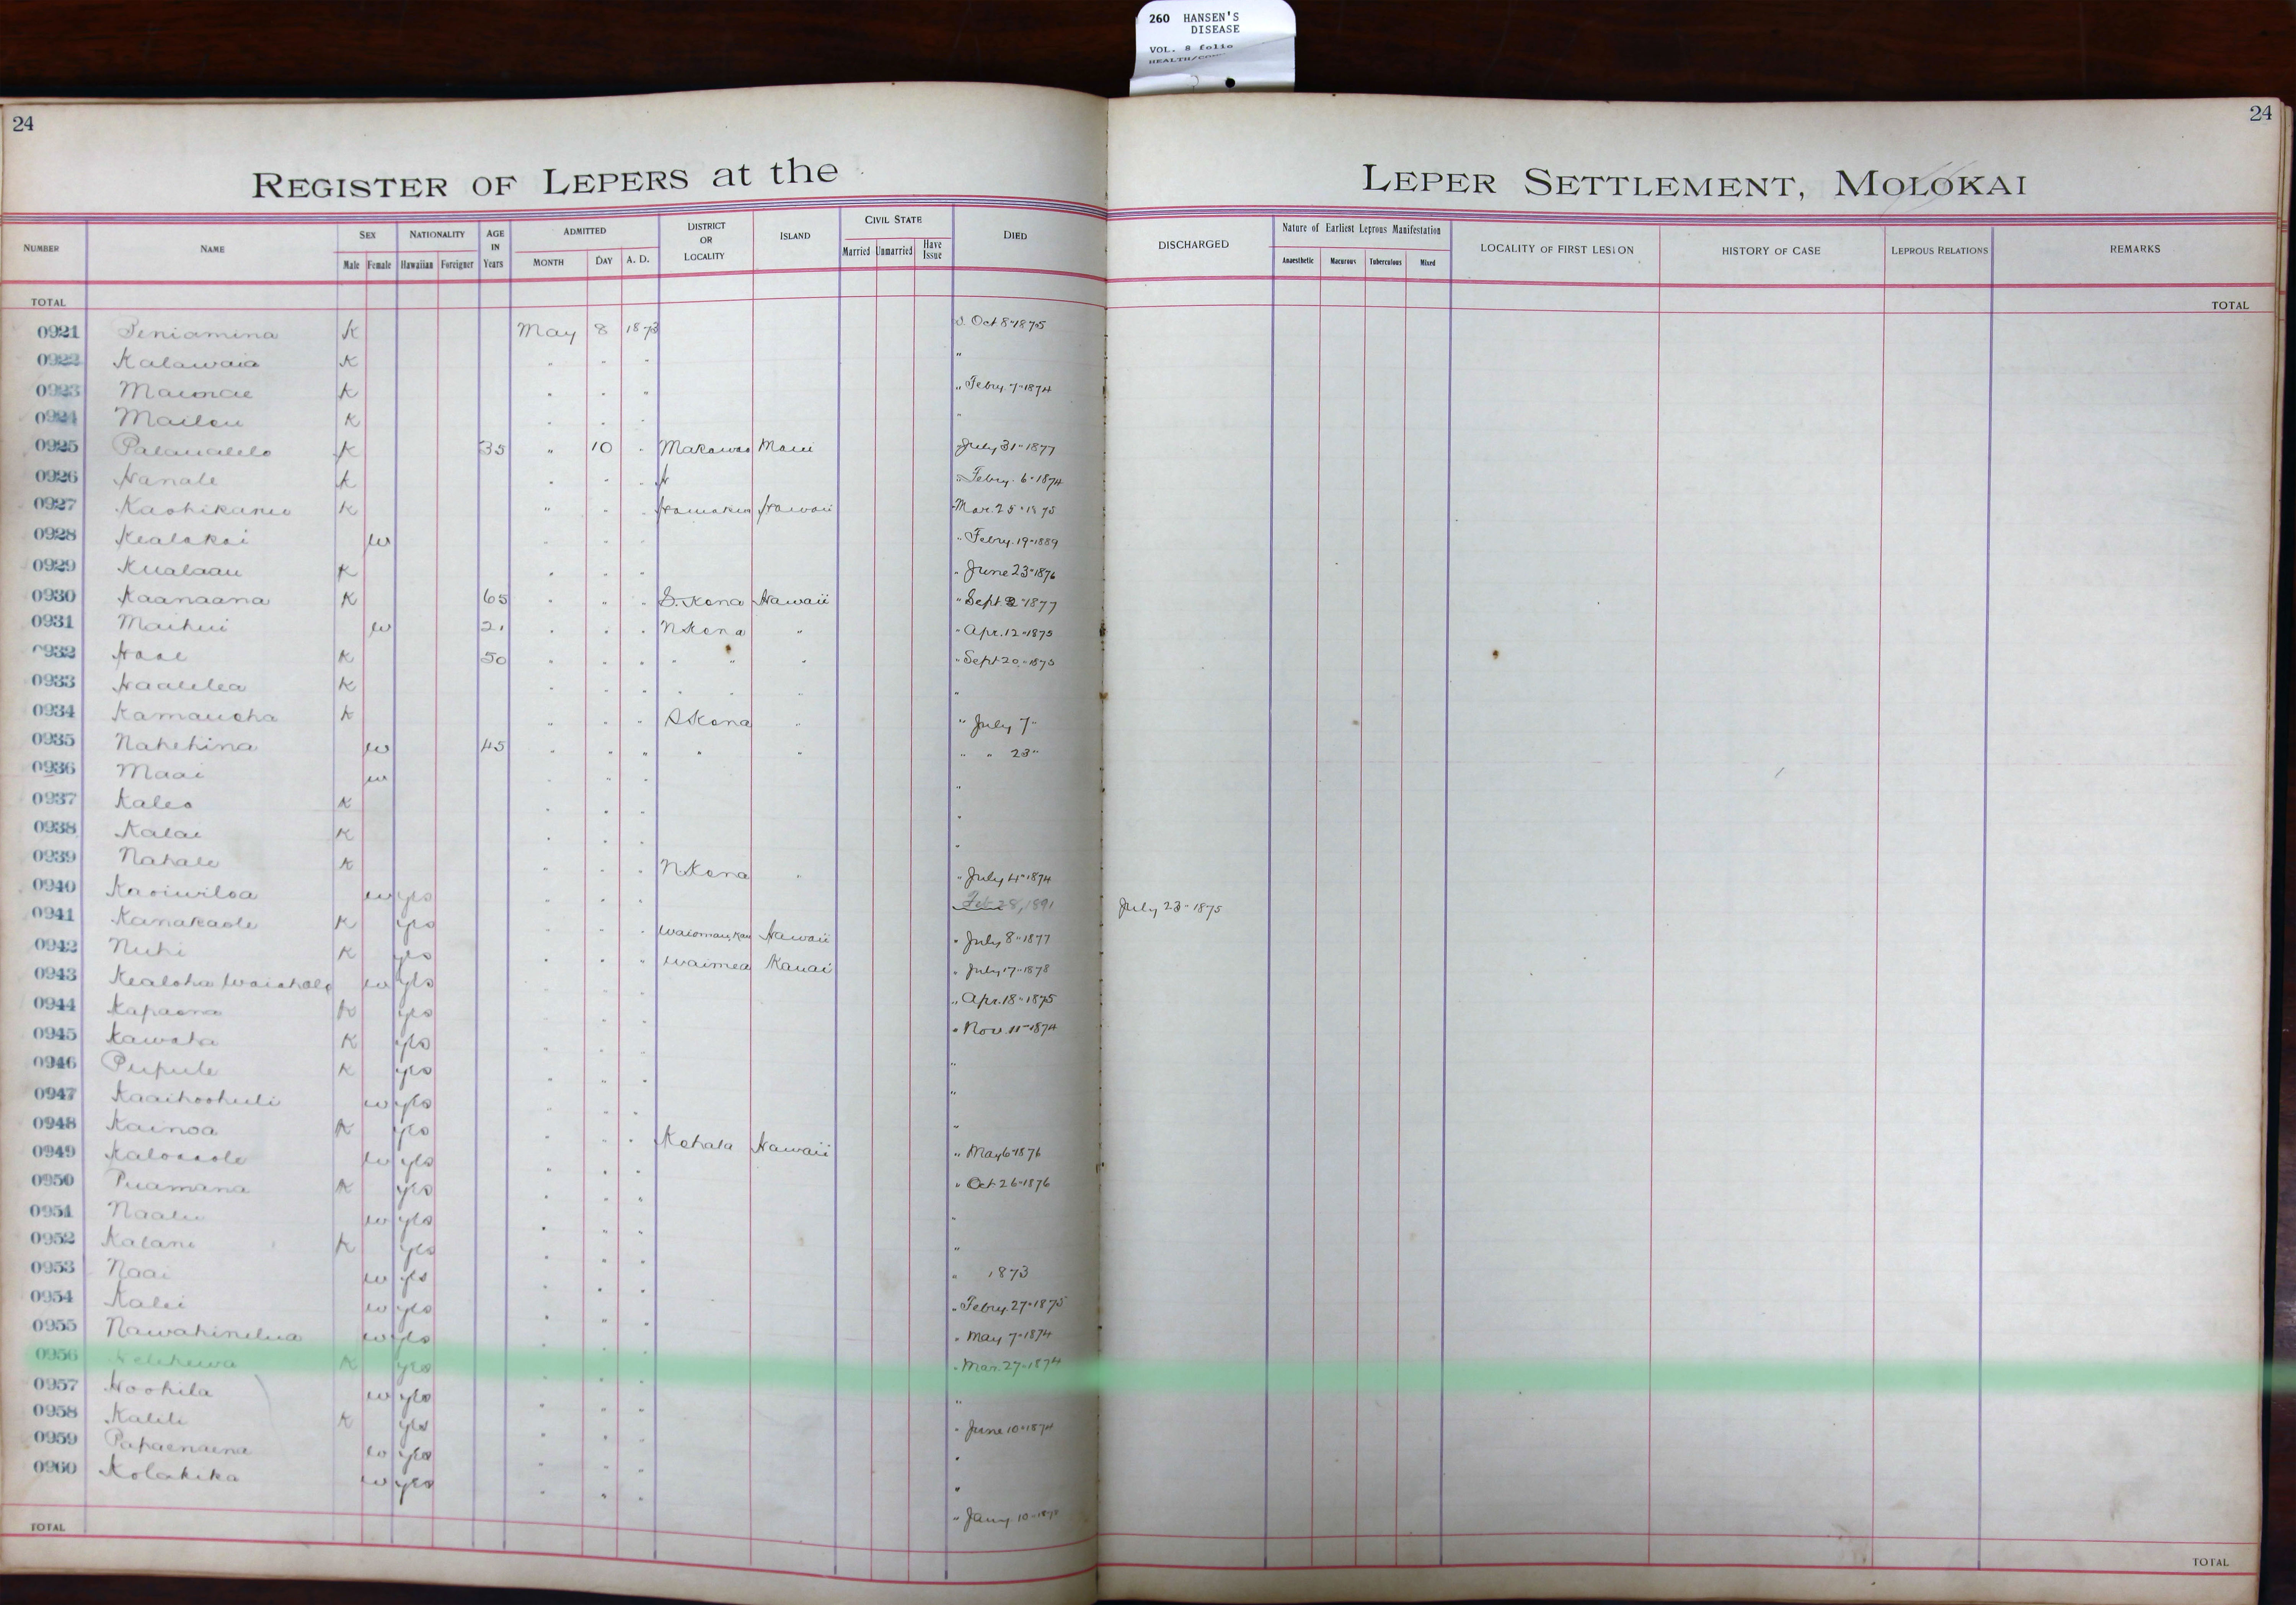 260 HANSEN'S
DISEASE
VOL. 8 folio
24
24
REGISTER OF LEPERS at the LEPER SETTLEMENT, MOLOKAI
NUMBER NAME SEX NATIONALITY AGE IN Years ADMITTED DISTRICT OR LOCALITY ISLAND CIVIL STATE DIED DISCHARGED Nature of Earliest Leprous Manifestation LOCALITY OF FIRST LESION HISTORY OF CASE LEPROUS RELATIONS REMARKS
Male Female Hawaiian Foreigner MONTH DAY A. D. Married Unmarried Have Issue Anaesthetic Macurous Tuberculous Mixed
TOTAL TOTAL
0921 Peniamina K May 8 1873 Oct 8"1875
0922 Kalawaia K " " " "
0923 K " " " " Febry. 7"1874
0924 K " " " "
0925 K 35 " 10 " Makawao Maui July 31"1877
0926 Hanale K " " " " Febry. 6"1874
0927 K " " " Hawaii Mar. 25"1875
0928 w " " " " Febry. 19"1889
0929 Kualaau K " " " " June 23"1876
0930 Kaanaana K 65 " " " S. Kona Hawaii " Sept 2"1877
0931 Maihui w 21 " " " N Kona " " Apr. 12"1875
0932 K 50 " " " " " " " Sept 20"1875
0933 Haalelea K " " " " " " "
0934 K " " " S Kona " " July 7"
0935 Nahehina w 45 " " " " " " " 23"
0936 Maai w " " " "
0937 Kaleo K " " " "
0938 Kalai K " " " "
0939 Nahale K " " " N Kona " " July 4"1874
0940 Kaoiwiloa w yes " " " Feb 28, 1891 July 23"1875
0941 Kanakaole K yes " " " Hawaii " July 8"1877
0942 Nuhi K yes " " " Waimea Kauai " July 17"1878
0943 Kealoha w yes " " " " Apr. 18"1875
0944 Kapaona K yes " " " Nov. 11"1874
0945 Kawaha K yes " " " "
0946 Pupule K yes " " " "
0947 Kaaihoohuli w yes " " " "
0948 Kainoa K yes " " " Kohala Hawaii " May 6"1876
0949 w yes " " " " Oct 26"1876
0950 Puamana K yes " " " "
0951 Naalu w yes " " " "
0952 Kalani K yes " " " " 1873
0953 Naai w yes " " " " Febry. 27"1875
0954 Kalei w yes " " " " May 7"1874
0955 Nawahinelua w yes " " " " Mar. 27"1874
0956 K yes " " " "
0957 Hoohila w yes " " " " June 10"1874
0958 Kalili K yes " " " "
0959 Papaenaena w yes " " " "
0960 Kolakika w yes " " " " Jany. 10"
TOTAL TOTAL